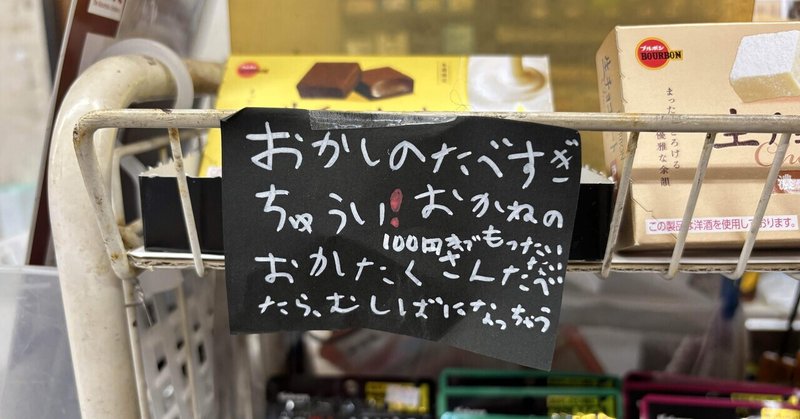 おかしのたべすぎ
ちゅうい!おかねの
100円までもったいない
おかしたくさんたべ
たら、むしばになっちゃう
ブルボン
BOURBON
まったりとろける
優雅な余韻
生チョコ
濃
この製品は洋酒を使用しております。